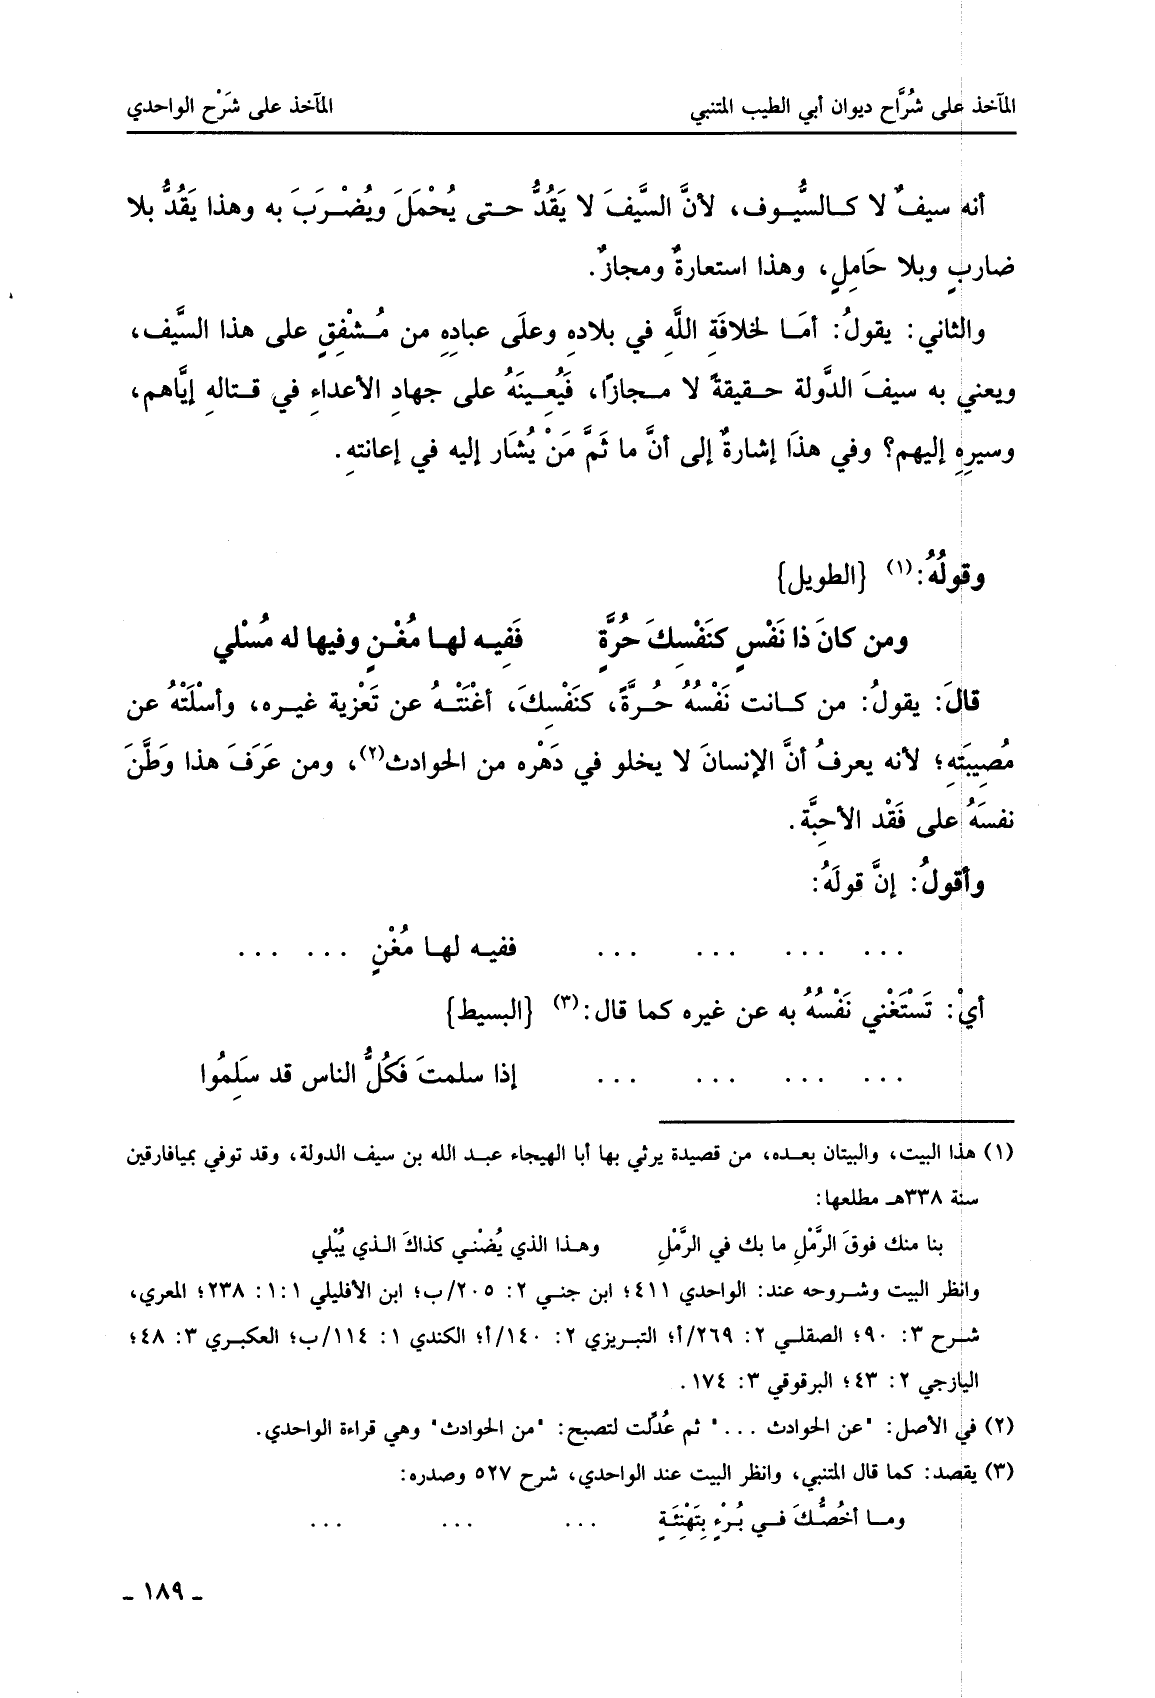 المآخذ على شُرَّاح ديوان أبي الطيب المتنبي المآخذ على شَرْح الواحدي
أنه سيفٌ لا كالسُّيوف، لأنَّ السَّيفَ لا يَقُدُّ حتى يُحْمَلَ ويُضْرَبَ به وهذا يَقُدُّ بلا
ضاربٍ وبلا حَامِلٍ، وهذا استعارةٌ ومجازٌ.
والثاني: يقولُ: أمَا لخلافَةِ اللَّهِ في بلادِهِ وعلَى عبادِهِ من مُشْفِقٍ على هذا السَّيف،
ويعني به سيفَ الدَّولة حقيقةً لا مجازًا، فَيُعِينَهُ على جهادِ الأعداءِ في قتالهِ إيَّاهم،
وسيرِهِ إليهم؟ وفي هذَا إشارةٌ إلى أنَّ ما ثَمَّ مَنْ يُشَار إليه في إعانتهِ.
وقولُهُ:(١) {الطويل}
ومن كانَ ذا نَفْسٍ كنَفْسِكَ حُرَّةٍ فَفِيه لها مُغْنٍ وفيها له مُسْلي
قالَ: يقولُ: من كانت نَفْسُهُ حُرَّةً، كنَفْسِكَ، أغْنَتْهُ عن تَعْزية غيره، وأسْلَتْهُ عن
مُصِيبَتِهِ؛ لأنه يعرفُ أنَّ الإنسانَ لا يخلو في دَهْره من الحوادث(٢)، ومن عَرَفَ هذا وَطَّنَ
نفسَهُ على فَقْد الأحِبَّة.
وأقولُ: إنَّ قولَهُ:
... ... ... ... ففيه لها مُغْنٍ ... ...
أيْ: تَسْتَغْني نَفْسُهُ به عن غيره كما قال:(٣) {البسيط}
... ... ... ... إذا سلمتَ فَكُلُّ الناس قد سَلِمُوا
(١) هذا البيت، والبيتان بعده، من قصيدة يرثي بها أبا الهيجاء عبد الله بن سيف الدولة، وقد توفي بميافارقين
سنة ٣٣٨هـ مطلعها:
بنا منك فوقَ الرَّمْلِ ما بك في الرَّمْلِ وهذا الذي يُضْني كذاكَ الذي يُبْلي
وانظر البيت وشروحه عند: الواحدي ٤١١؛ ابن جني ٢: ٢٠٥/ب؛ ابن الأفليلي ١:١: ٢٣٨؛ المعري،
شرح ٣: ٩٠؛ الصقلي ٢: ٢٦٩/أ؛ التبريزي ٢: ١٤٠/أ؛ الكندي ١: ١١٤/ب؛ العكبري ٣: ٤٨؛
اليازجي ٢: ٤٣؛ البرقوقي ٣: ١٧٤.
(٢) في الأصل: "عن الحوادث ..." ثم عُدِّلت لتصبح: "من الحوادث" وهي قراءة الواحدي.
(٣) يقصد: كما قال المتنبي، وانظر البيت عند الواحدي، شرح ٥٢٧ وصدره:
وما أخُصُّكَ في بُرْءٍ بِتَهْنِئَةٍ ... ... ...
ـ ١٨٩ ـ